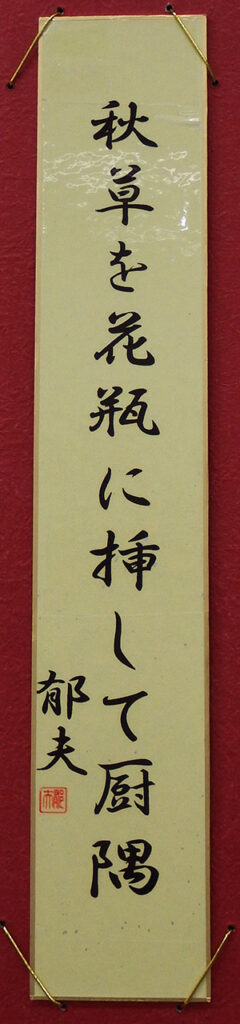 秋草を花瓶に挿して厨隅
郁夫